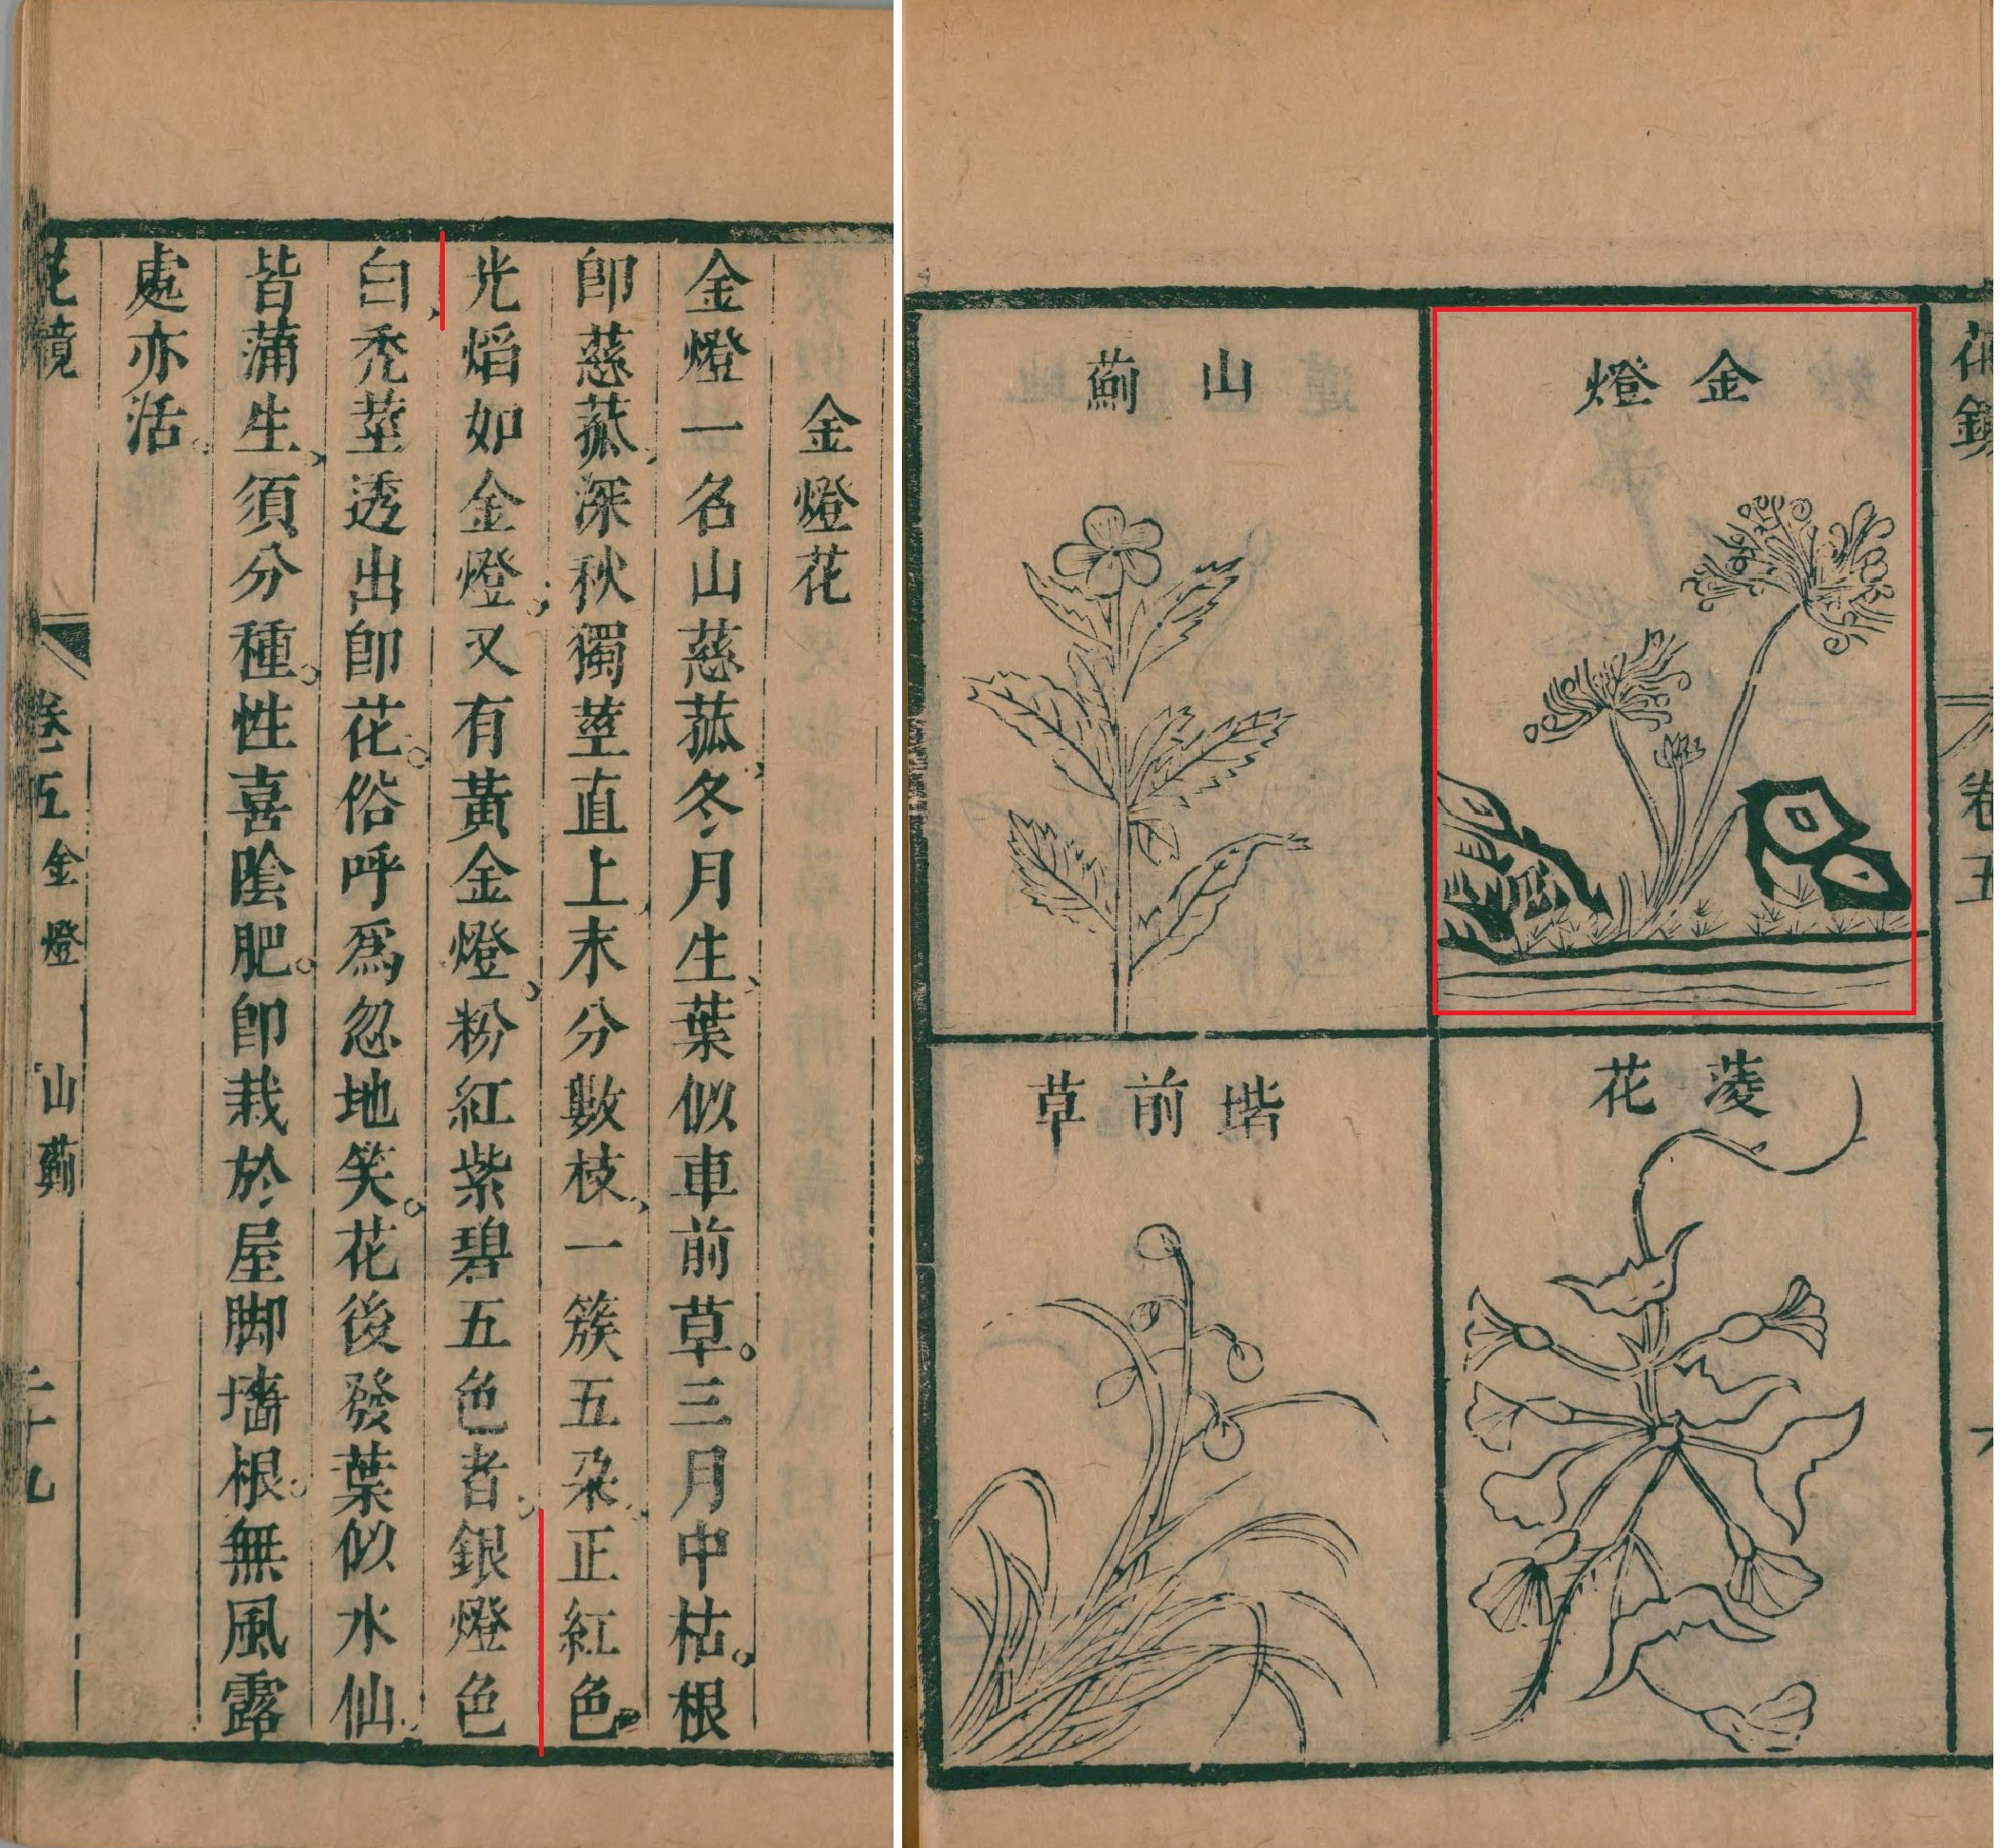 金燈花
金燈一名山慈菰冬月生葉似車前草三月中枯根
卽慈菰深秋獨莖直上末分數枝一簇五朶正紅色
光焰如金燈又有黃金燈粉紅紫碧五色者銀燈色
白禿莖透出卽花俗呼爲忽地笑花後發葉似水仙
皆蒲生須分種性喜陰肥卽栽於屋脚墻根無風露
處亦活
花鏡 卷五 金燈 山薊
金燈
山薊
菱花
堦前草
卷五